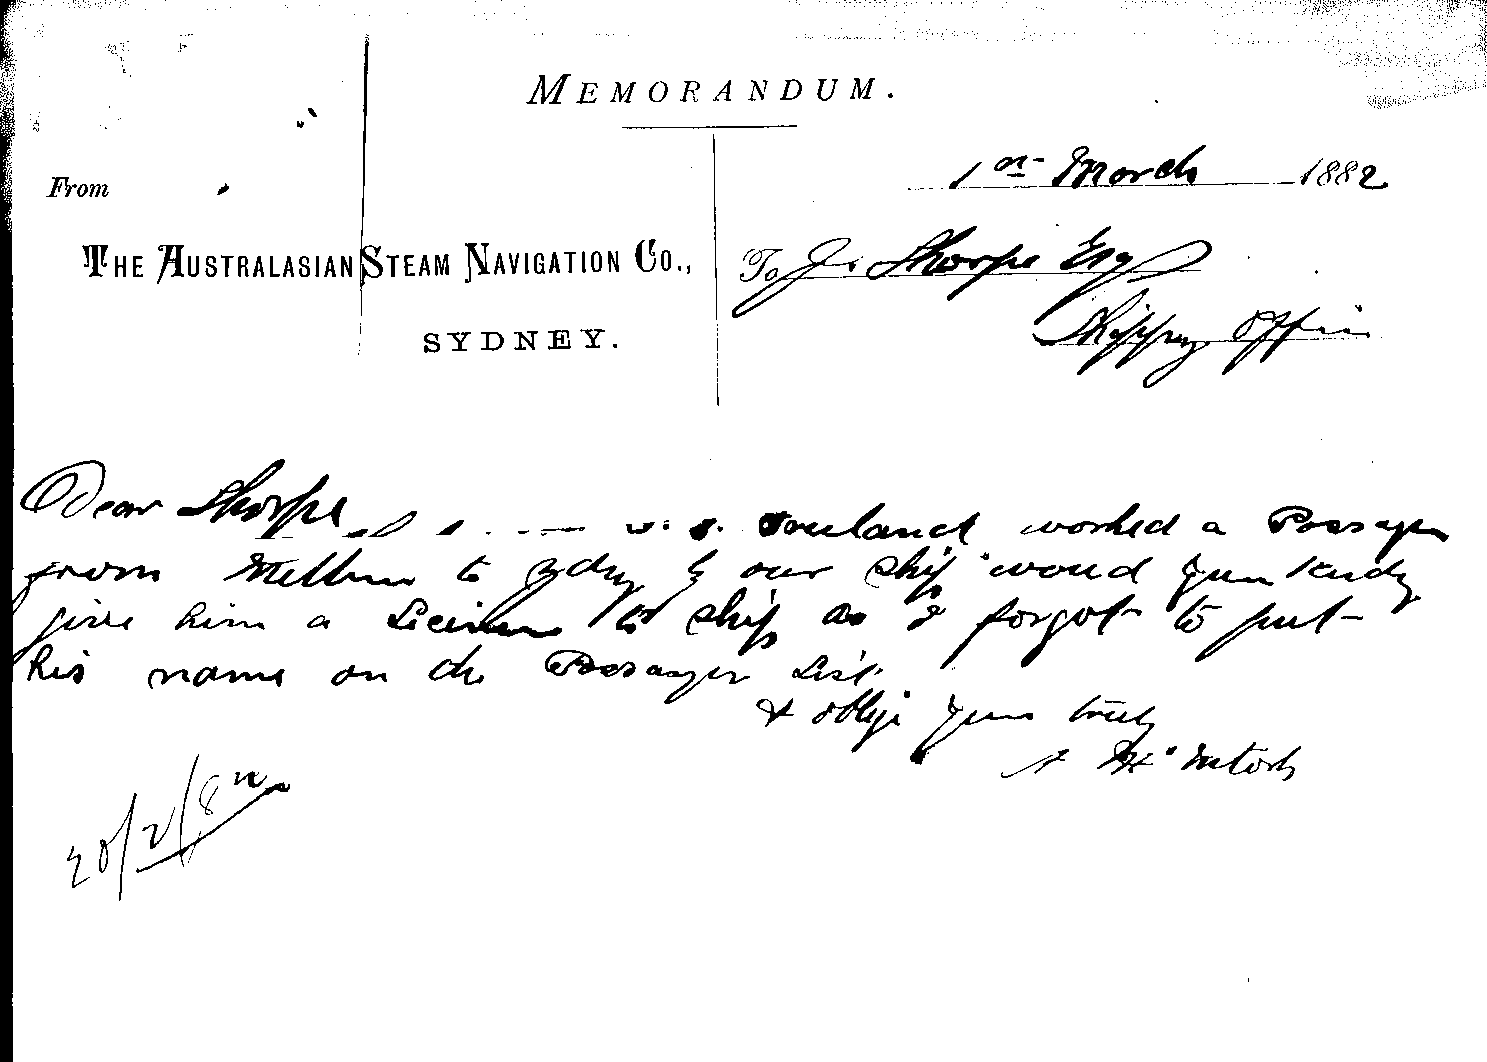 MEMORANDUM.
1st March 1882
From
THE AUSTRALASIAN STEAM NAVIGATION CO.,
SYDNEY.
To J. Sharpe Esq
Shipping Office
Dear Sharpe
worked a Passage
from Melbne to Sydney by our ship would you kindly
give him a License to ship as I forgot to put
his name on the Passenger List
& oblige yours truly
A McIntosh
28/2/82